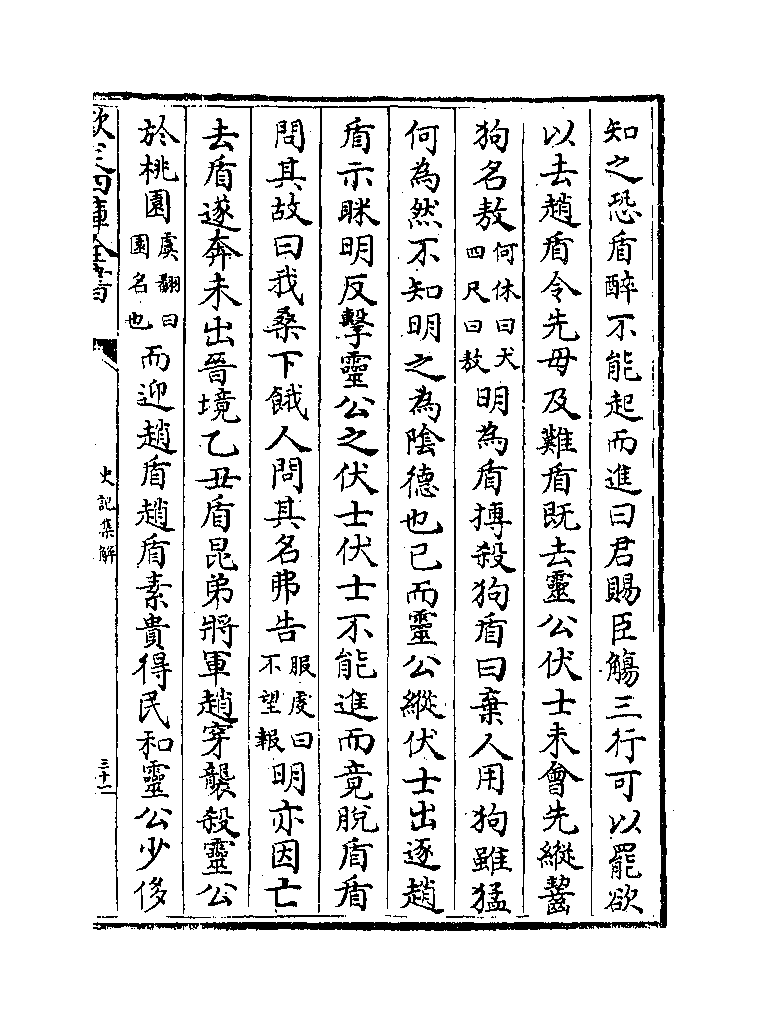 知之恐盾醉不能起而進曰君賜臣觴三行可以罷欲
以去趙盾令先毋及難盾既去靈公伏士未會先縱齧
狗名敖何休曰犬四尺曰敖明為盾搏殺狗盾曰棄人用狗雖猛
何為然不知明之為陰德也已而靈公縱伏士出逐趙
盾示眯明反擊靈公之伏士伏士不能進而竟脫盾盾
問其故曰我桑下餓人問其名弗告服虔曰不望報明亦因亡
去盾遂奔未出晉境乙丑盾昆弟將軍趙穿襲殺靈公
於桃園虞翻曰園名也而迎趙盾趙盾素貴得民和靈公少侈
欽定四庫全書
史記集解
三十一